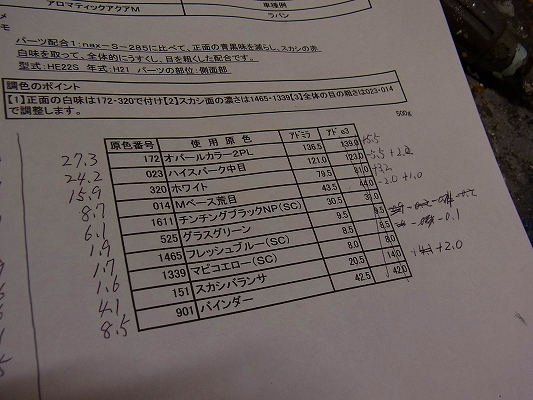 アロマティックアクアM
車種例
ラパン
メ
モ
パーツ配合1:nax-S-285に比べて、正面の青黒味を減らし、スカシの赤
白味を取って、全体的にうすくし、目を粗くした配合です。
型式:HE22S 年式:H21 パーツの部位:側面部
調色のポイント
【1】正面の白味は172・320で付け【2】スカシ面の濃さは1465・1339【3】全体の目の粗さは023・014
で調整します。
500g
原色番号 使用原色 アドミラ アドe3
27.3 172 オパールカラー2PL 136.5 139.0
24.2 023 ハイスパーク中目 121.0 123.0
15.9 320 ホワイト 79.5 81.0
8.7 014 Mベース荒目 43.5 44.0 -2.0 +1.0
6.1 1611 チンチングブラックNP(SC) 30.5 31.0
1.9 525 グラスグリーン 9.5 9.5
1.7 1465 フレッシュブルー(SC) 8.5 8.5 -0.1
1.6 1339 マピコエロー(SC) 8.0 8.0
4.1 151 スカシバランサ 20.5 14.0 +2.0
8.5 901 バインダー 42.5 42.0